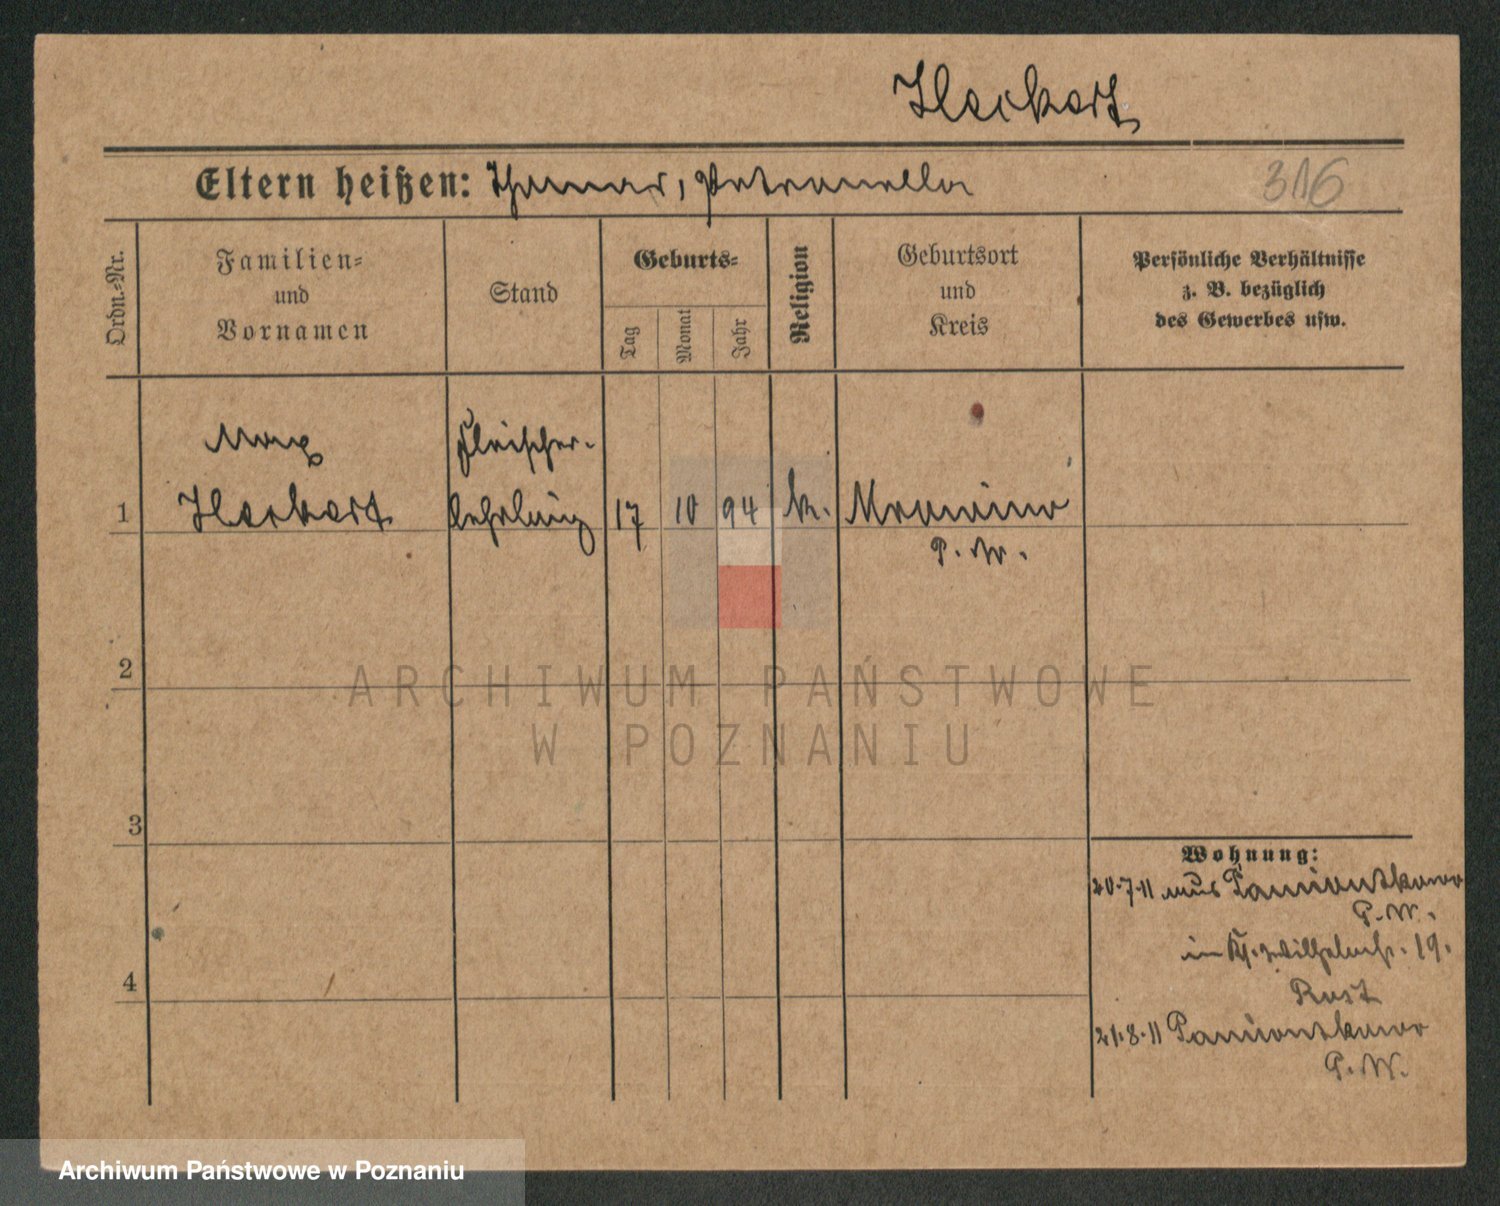 Heckert
316
Eltern heißen: Thomas, Petronella
Ordn.-Nr.
Familien-
und
Vornamen
Stand
Geburts-
Tag
Monat
Jahr
Religion
Geburtsort
und
Kreis
Persönliche Verhältnisse
z. B. bezüglich
des Gewerbes usw.
Max
Fleischer-
1 Heckert lehrling 17 10 94 k.
P. W.
2
ARCHIWUM PAŃSTWOWE
W POZNANIU
3
Wohnung:
20.7.11 aus Pamiontkowo
P. W.
in Wilhelmstr. 19.
Rost
21.8.11 Pamiontkowo
P. W.
4
Archiwum Państwowe w Poznaniu